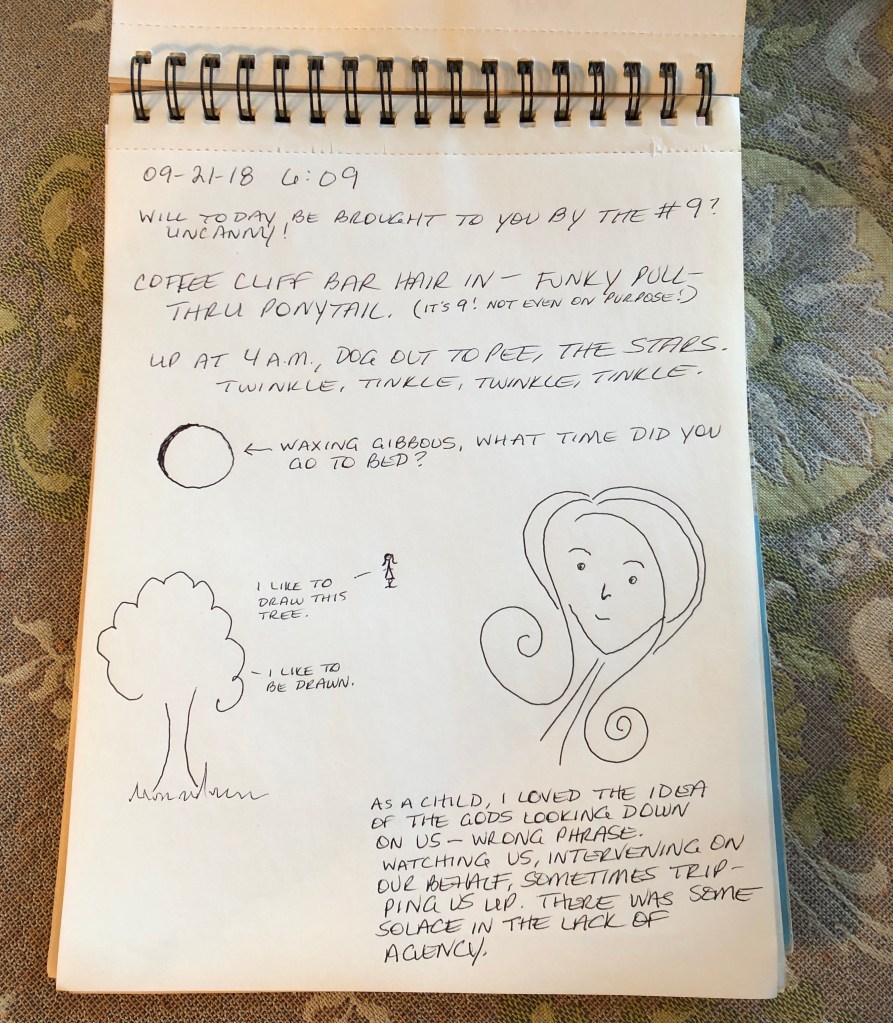 09-21-18 6:09
WILL TODAY BE BROUGHT TO YOU BY THE #9?
UNCANNY!
COFFEE CLIFF BAR HAIR IN - FUNKY PULL-
THRU PONYTAIL. (IT'S 9! NOT EVEN ON PURPOSE!)
UP AT 4 A.M., DOG OUT TO PEE, THE STARS.
TWINKLE, TINKLE, TWINKLE, TINKLE.
← WAXING GIBBOUS, WHAT TIME DID YOU
GO TO BED?
I LIKE TO
DRAW THIS
TREE.
- I LIKE TO
BE DRAWN.
AS A CHILD, I LOVED THE IDEA
OF THE GODS LOOKING DOWN
ON US - WRONG PHRASE.
WATCHING US, INTERVENING ON
OUR BEHALF, SOMETIMES TRIP-
PING US UP. THERE WAS SOME
SOLACE IN THE LACK OF
AGENCY.